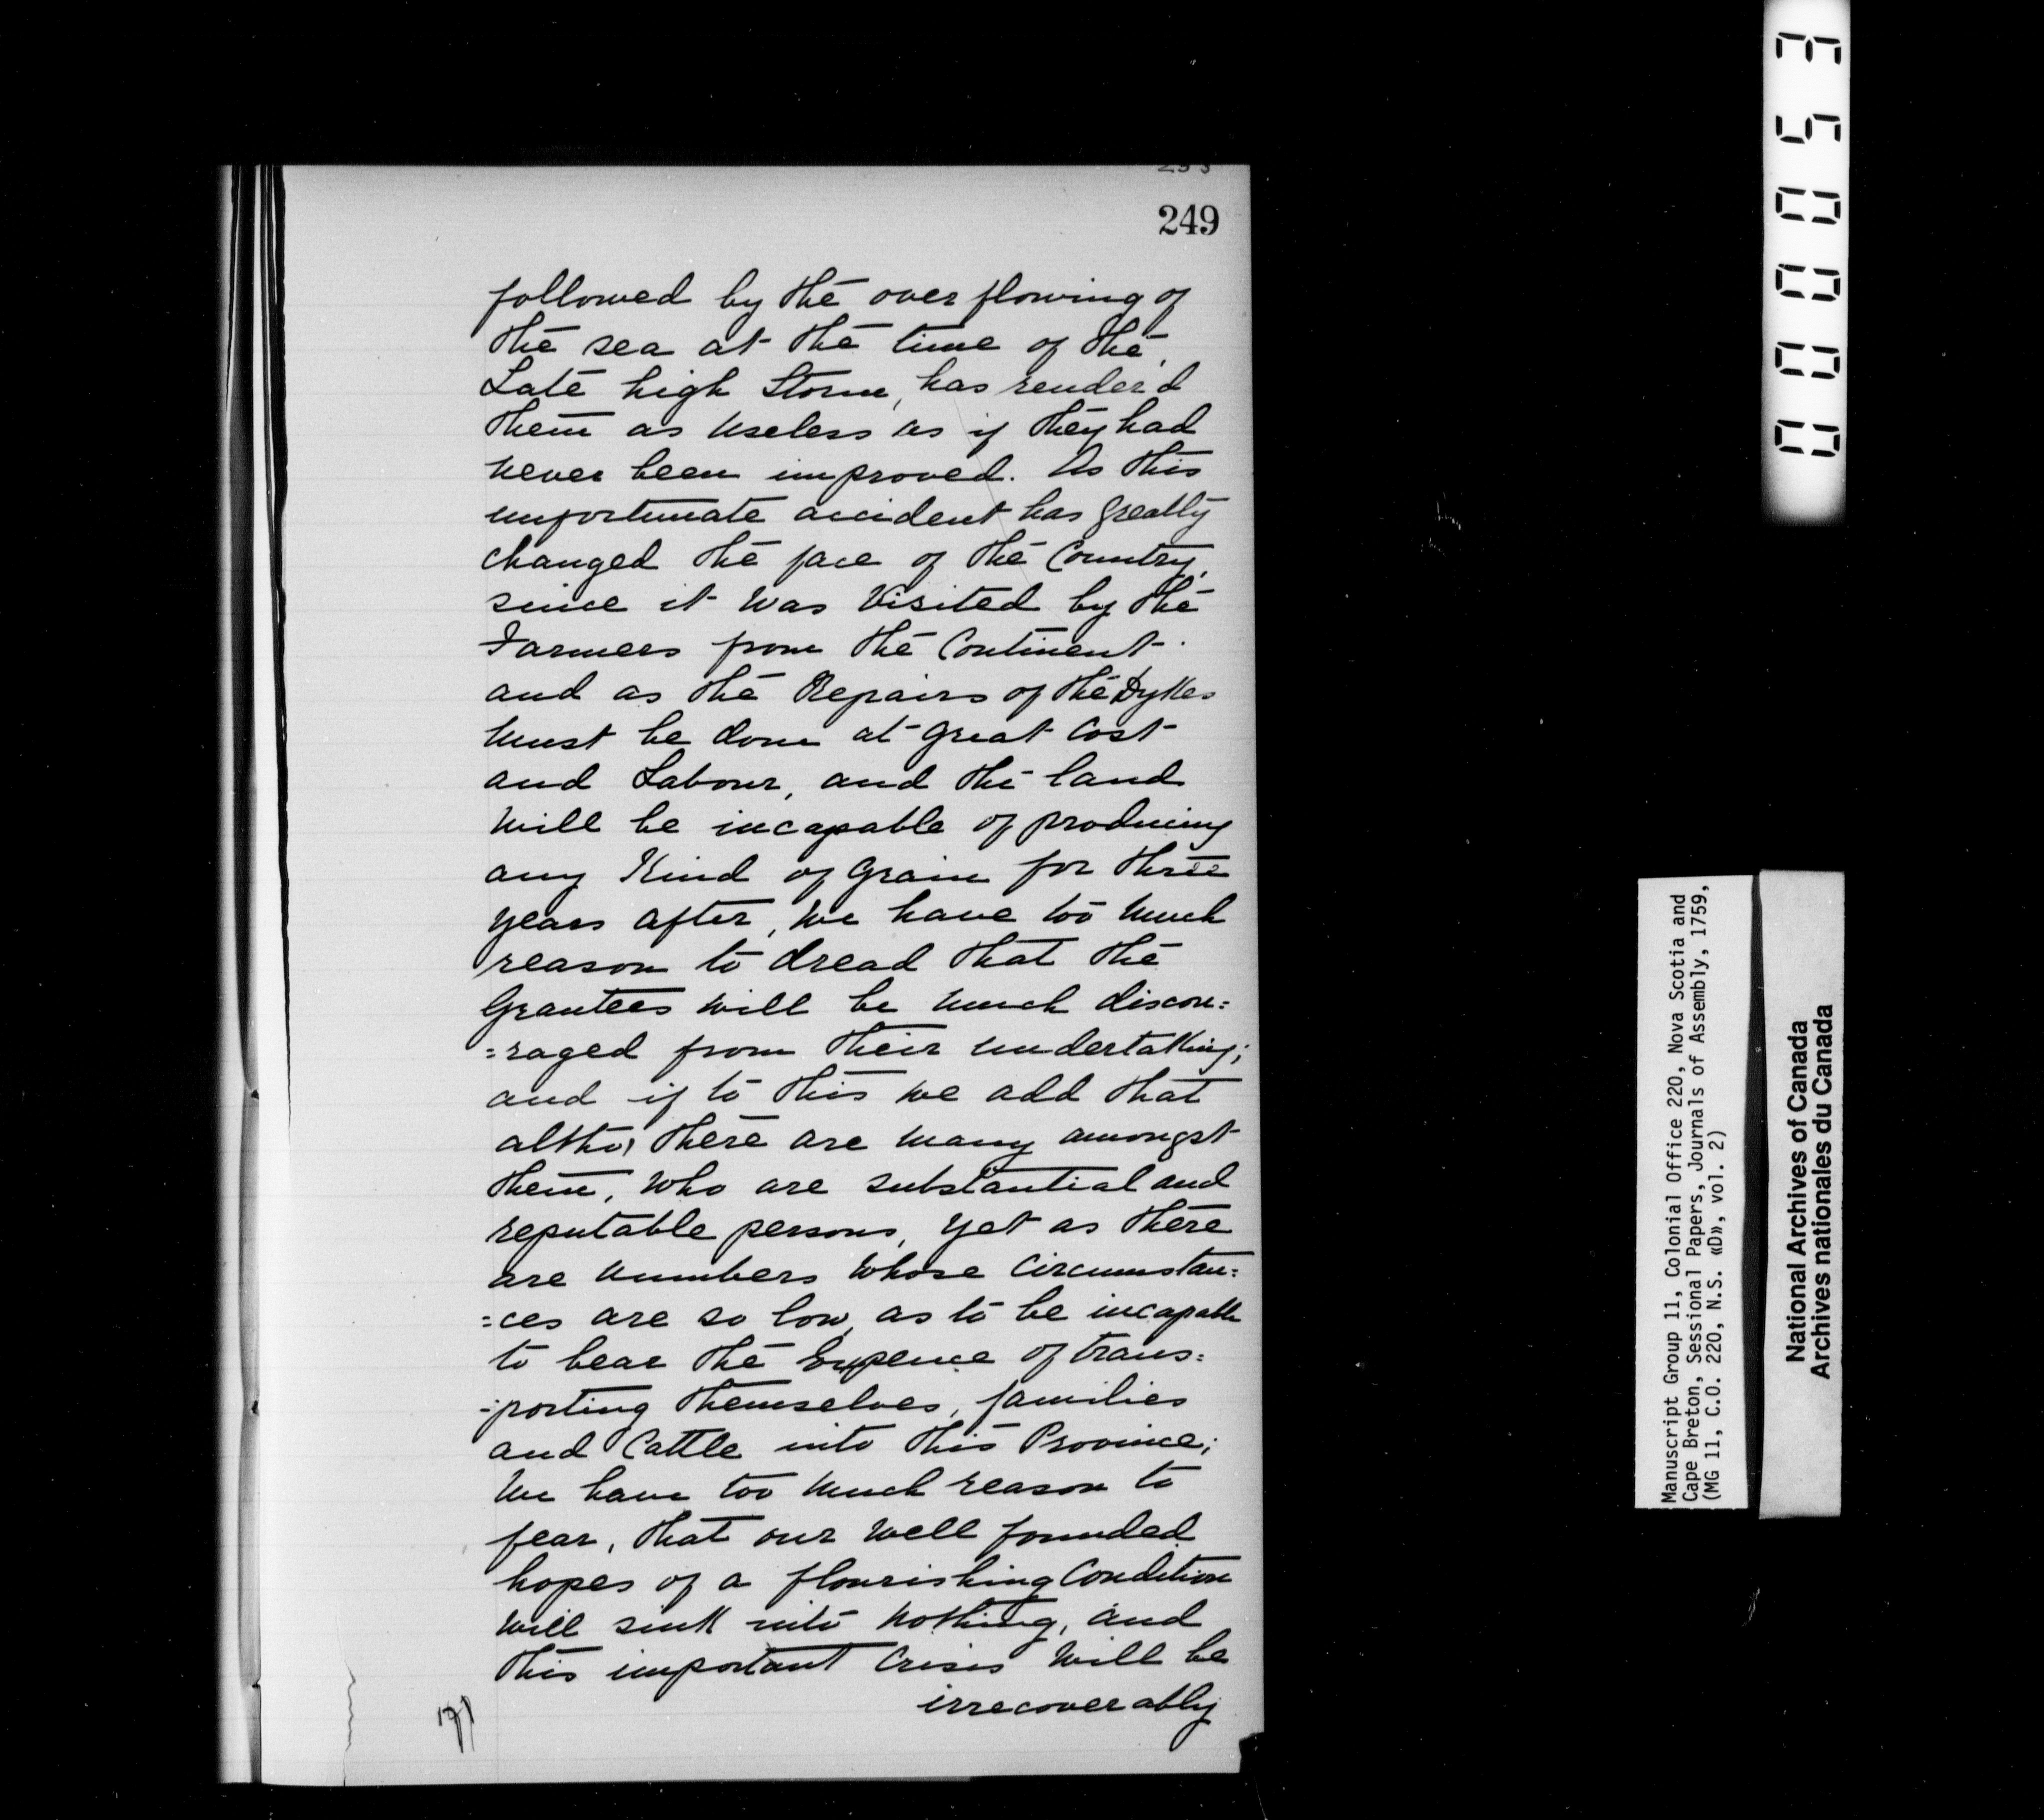 249
followed by the over flowing of
the sea at the time of the
Late high Storm, has render'd
them as useless as if they had
never been improved. As this
unfortunate accident has greatly
changed the face of the Country,
since it was Visited by the
Farmers from the Continent.
and as the Repairs of the Dykes
must be done at great Cost
and Labour, and the land
will be incapable of producing
any Kind of Grain for three
years after, we have too much
reason to dread that the
Grantees will be much discou=
=raged from their undertaking;
and if to this we add that
altho' there are many amongst
them, who are substantial and
reputable persons, yet as there
are numbers whose Circumstan=
=ces are so low, as to be incapable
to bear the Expence of trans=
=porting themselves, families
and Cattle into this Province;
We have too much reason to
fear, that our well founded
hopes of a flourishing Condition
will sink into nothing, and
this important Crisis will be
irrecoverably
00053
Manuscript Group 11, Colonial Office 220, Nova Scotia and
Cape Breton, Sessional Papers, Journals of Assembly, 1759,
(MG 11, C.O. 220, N.S. «D», vol. 2)
National Archives of Canada
Archives nationales du Canada